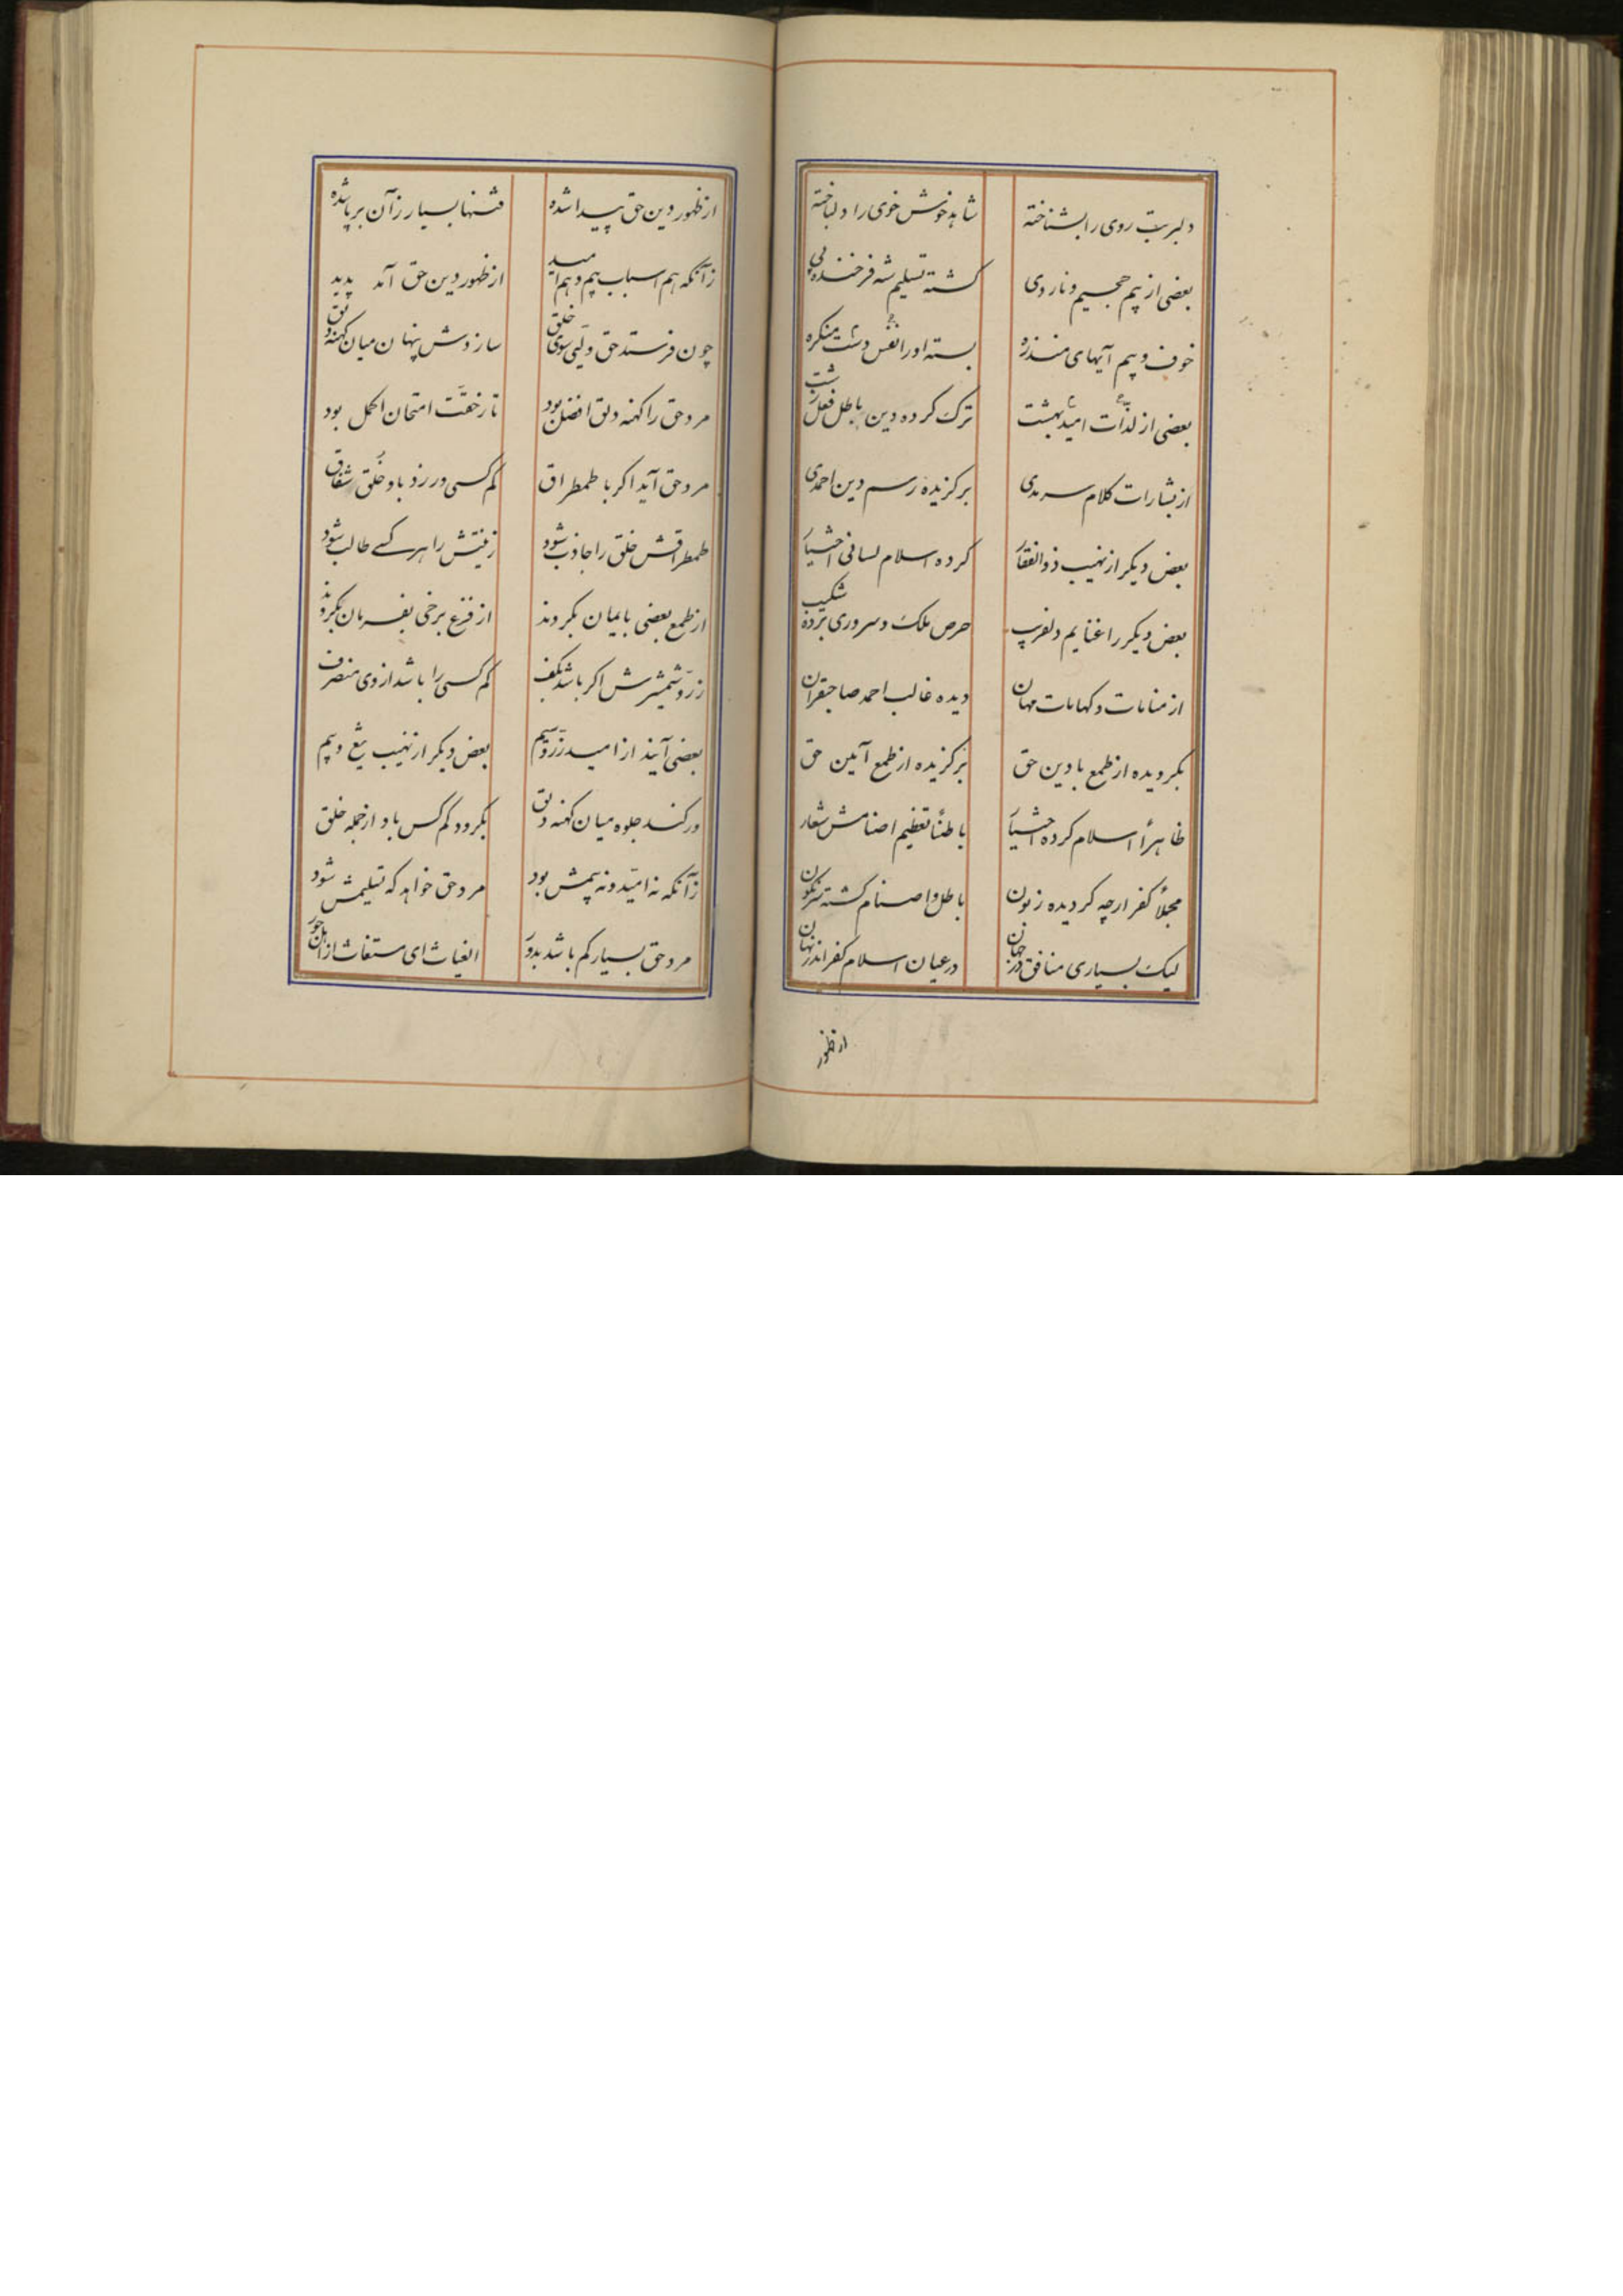 دلبر بت روی را بشناخته شاهد خوش خوی را دلباخته
بعضی از بیم جحیم و نار وی کشته تسلیم شه فرخنده پی
خوف و بیم آیهای منذره بسته او را نفس دشت منکره
بعضی از لذّات امید بهشت ترک کرده دین باطل فعل زشت
از بشارات کلام سرمدی برگزیده رسم دین احمدی
بعض دیکر از نهیب ذوالفقار کرده اسلام لسانی اختیار
بعض دیکر را غنایم دلفریب حرص ملک و سروری برده شکیب
از منامات و کهانات مهان دیده غالب احمد صاحبقران
بکرویده از طمع با دین حق برکزیده از طمع آئین حق
ظاهراً اسلام کرده اختیار باطناً تعظیم اصنامش شعار
مجملاً کفر ارچه کردیده زبون باطل و اصنام کشته سرنکون
لیک بسیاری منافق در جهان در عیان اسلام کفر اندر نهان
از ظهور
از ظهور دین حق پیدا شده فتنها بسیار زآن برپا شده
زآنکه هم اسباب بیم و هم امید از ظهور دین حق آمد پدید
چون فرستد حق ولّیی سوی خلق سازدش پنهان میان کهنه دلق
مرد حق را کهنه دلق افضل بود تا رخقّت امتحان اکمل بود
مرد حق آید اکر با طمطراق کم کسی ورزد باو خُلق شقاق
طمطراقش خلق را جاذب شود زینتش را هر کسی طالب شود
از طمع بعضی بایمان بکروند از فزع برخی بفرمان بکروند
زرّ و شمشیرش اکر باشد بکف کم کسی را باشد از وی منصرف
بعضی آیند از امید زرّ و سیم بعض دیکر از نهیب تیغ و بیم
ور کند جلوه میان کهنه دلق بکرود کم کس باو از جمله خلق
زآنکه نه امیّد و نه بیمش بود مرد حق خواهد که تسلیمش شود
مرد حق بسیار کم باشد بدور الغیاث ای مستغاث از اهل جور